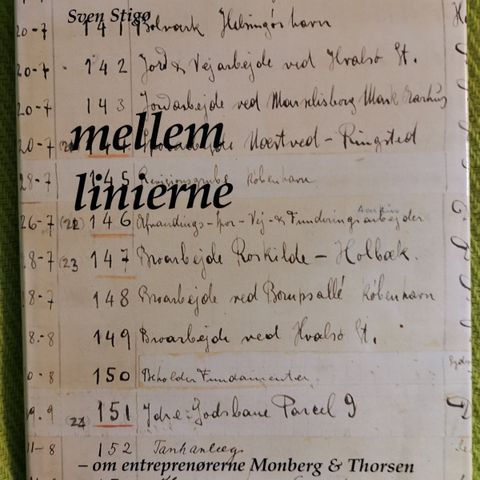 Sven Stigø
20-7 141 Bolværk Helsingør havn
20-7 - 142 Jord & Vejarbejde ved Hvalsø St.
20-7 143 Jordarbejde ved Marselisborg Mark Aarhus
mellem
20-7 Næstved - Ringsted
linierne
28-7 145 København
26-7 (22) 146 Afvandings- spor- Vej- & Funderingsarbejder
8-7 (23 147 Broarbejde Roskilde - Holbæk.
8-7 148 Broarbejde ved Borups allé København
8.-8 149 Broarbejde ved Hvalsø St.
0-8 150 Beholder Fundamenter
9.9 24 151 Godsbane Parcel 9
11-8 152 Tankanlæg
– om entreprenørerne Monberg & Thorsen